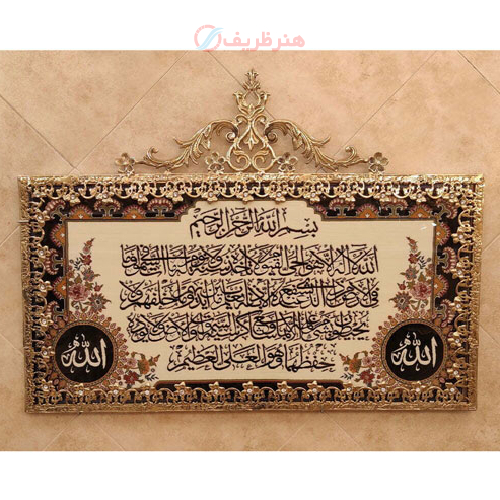 هنرظریف
بسم الله الرحمن الرحيم
الله لا اله الا هو الحي القيوم لا تأخذه سنة ولا نوم له ما في السموات وما
في الارض من ذا الذي يشفع عنده الا باذنه يعلم ما بين ايديهم وما خلفهم ولا
يحيطون بشيء من علمه الا بما شاء وسع كرسيه السموات والارض ولا يؤده
حفظهما وهو العلي العظيم
الله
الله